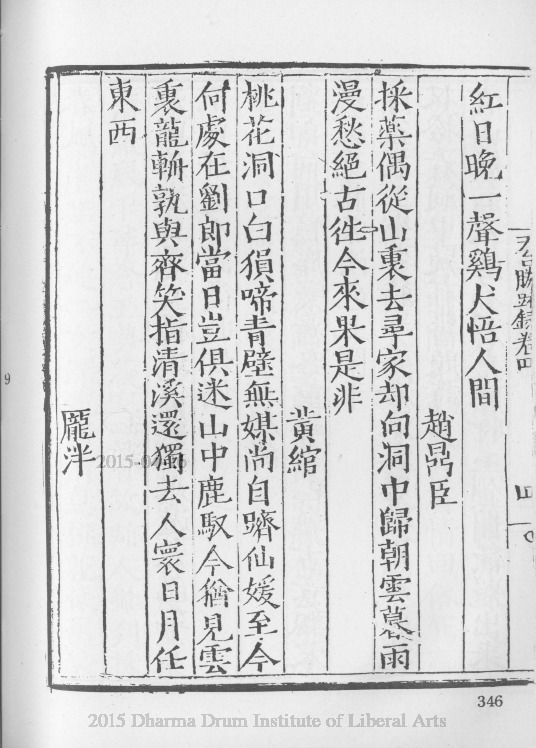 天台勝蹟錄卷四
四
紅日晚一聲鷄犬悟人間
趙鼎臣
採藥偶從山裏去尋家却向洞中歸朝雲暮雨
漫愁絕古徃今來果是非
黃綰
桃花洞口白猿啼青壁無媒尚自躋仙媛至今
何處在劉郎當日豈俱迷山中鹿馭今猶見雲
裏龍軿孰與齊笑指清溪還獨去人寰日月任
東西
龎泮
9
346
2015 Dharma Drum Institute of Liberal Arts